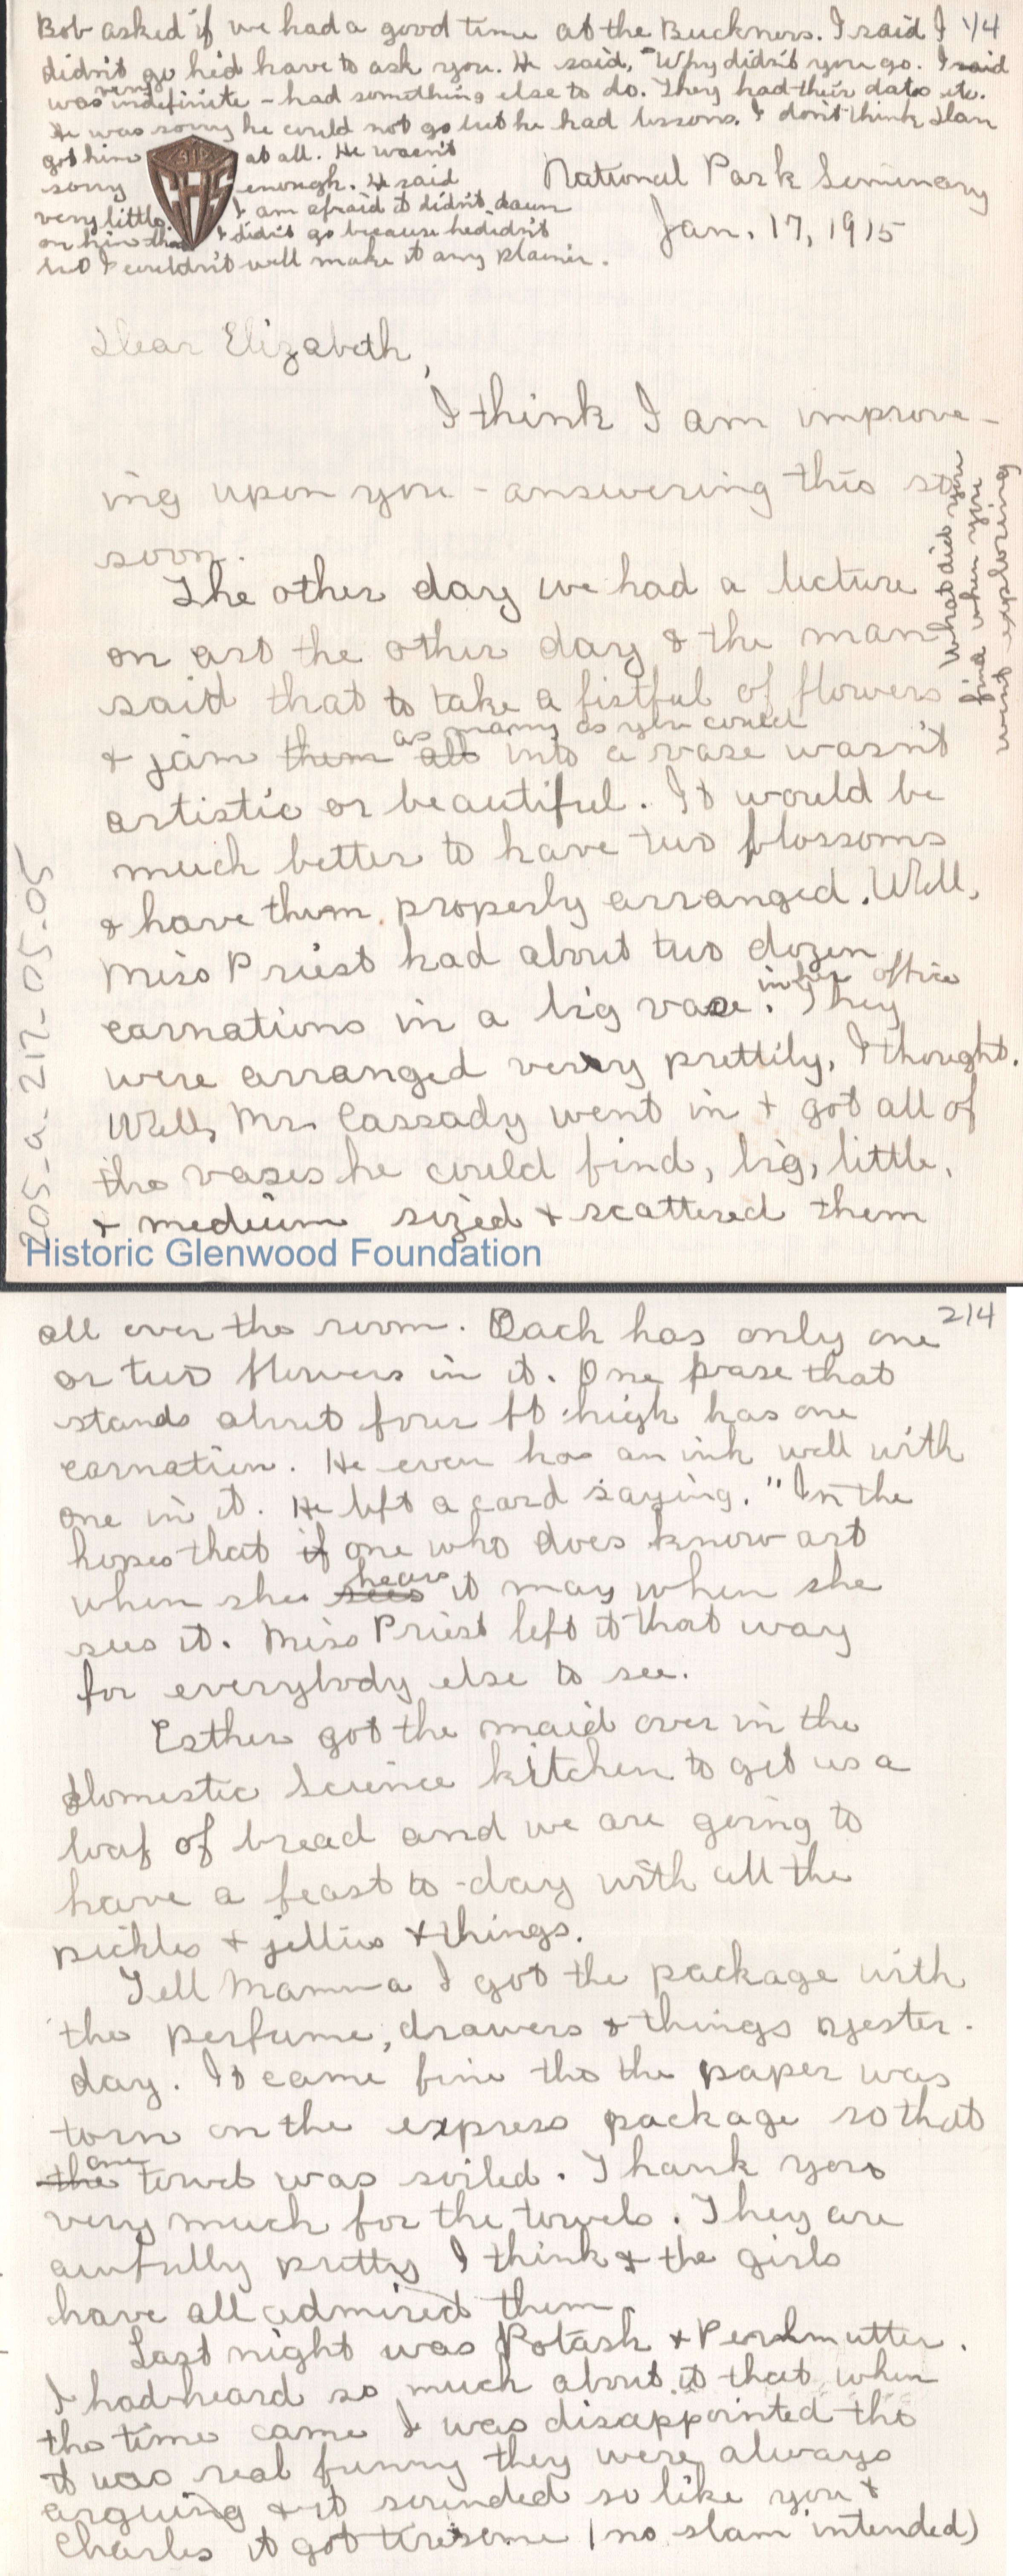 Bob asked if we had a good time at the Buckners. I said I 1/4
didn't go he'd have to ask you. He said, "Why didn't you go. I said
was very indefinite - had something else to do. They had their dates etc.
He was sorry he could not go but he had lessons. I don't think Dan
got him at all. He wasn't
sorry enough. He said
very little. I am afraid it didn't dawn
on him that I didn't go because he didn't
but I couldn't well make it any plainer.
NPS
National Park Seminary
Jan. 17, 1915
Dear Elizabeth,
I think I am improve-
ing upon you - answering this so
soon.
What did you
find when you
went exploring
The other day we had a lecture
on art the other day & the man
said that to take a fistful of flowers
& jam them all as many as you could into a vase wasn't
artistic or beautiful. It would be
much better to have two blossoms
& have them properly arranged. Well,
Miss Priest had about two dozen
carnations in a big vase in her office. They
were arranged very prettily, I thought.
Well, Mr. Cassady went in + got all of
the vases he could find, big, little,
+ medium sized + scattered them
205-a-217-05-05
Historic Glenwood Foundation
2/4
all over the room. Each has only one
or two flowers in it. One vase that
stands about four ft high has one
carnation. He even has an ink well with
one in it. He left a card saying. "In the
hopes that if one who does know art
when she sees hears it may when she
sees it. Miss Priest left it that way
for everybody else to see.
Esther got the maid over in the
Domestic Science kitchen to get us a
loaf of bread and we are going to
have a feast to-day with all the
pickles + jellies + things.
Tell Mamma I got the package with
the perfume, drawers & things yester-
day. It came fine tho the paper was
torn on the express package so that
the one towel was soiled. Thank you
very much for the towels. They are
awfully pretty I think & the girls
have all admired them.
Last night was Potash + Perlmutter.
I had heard so much about it that when
the time came I was disappointed tho
it was real funny they were always
arguing & it sounded so like you +
Charles it got tiresome (no slam intended)